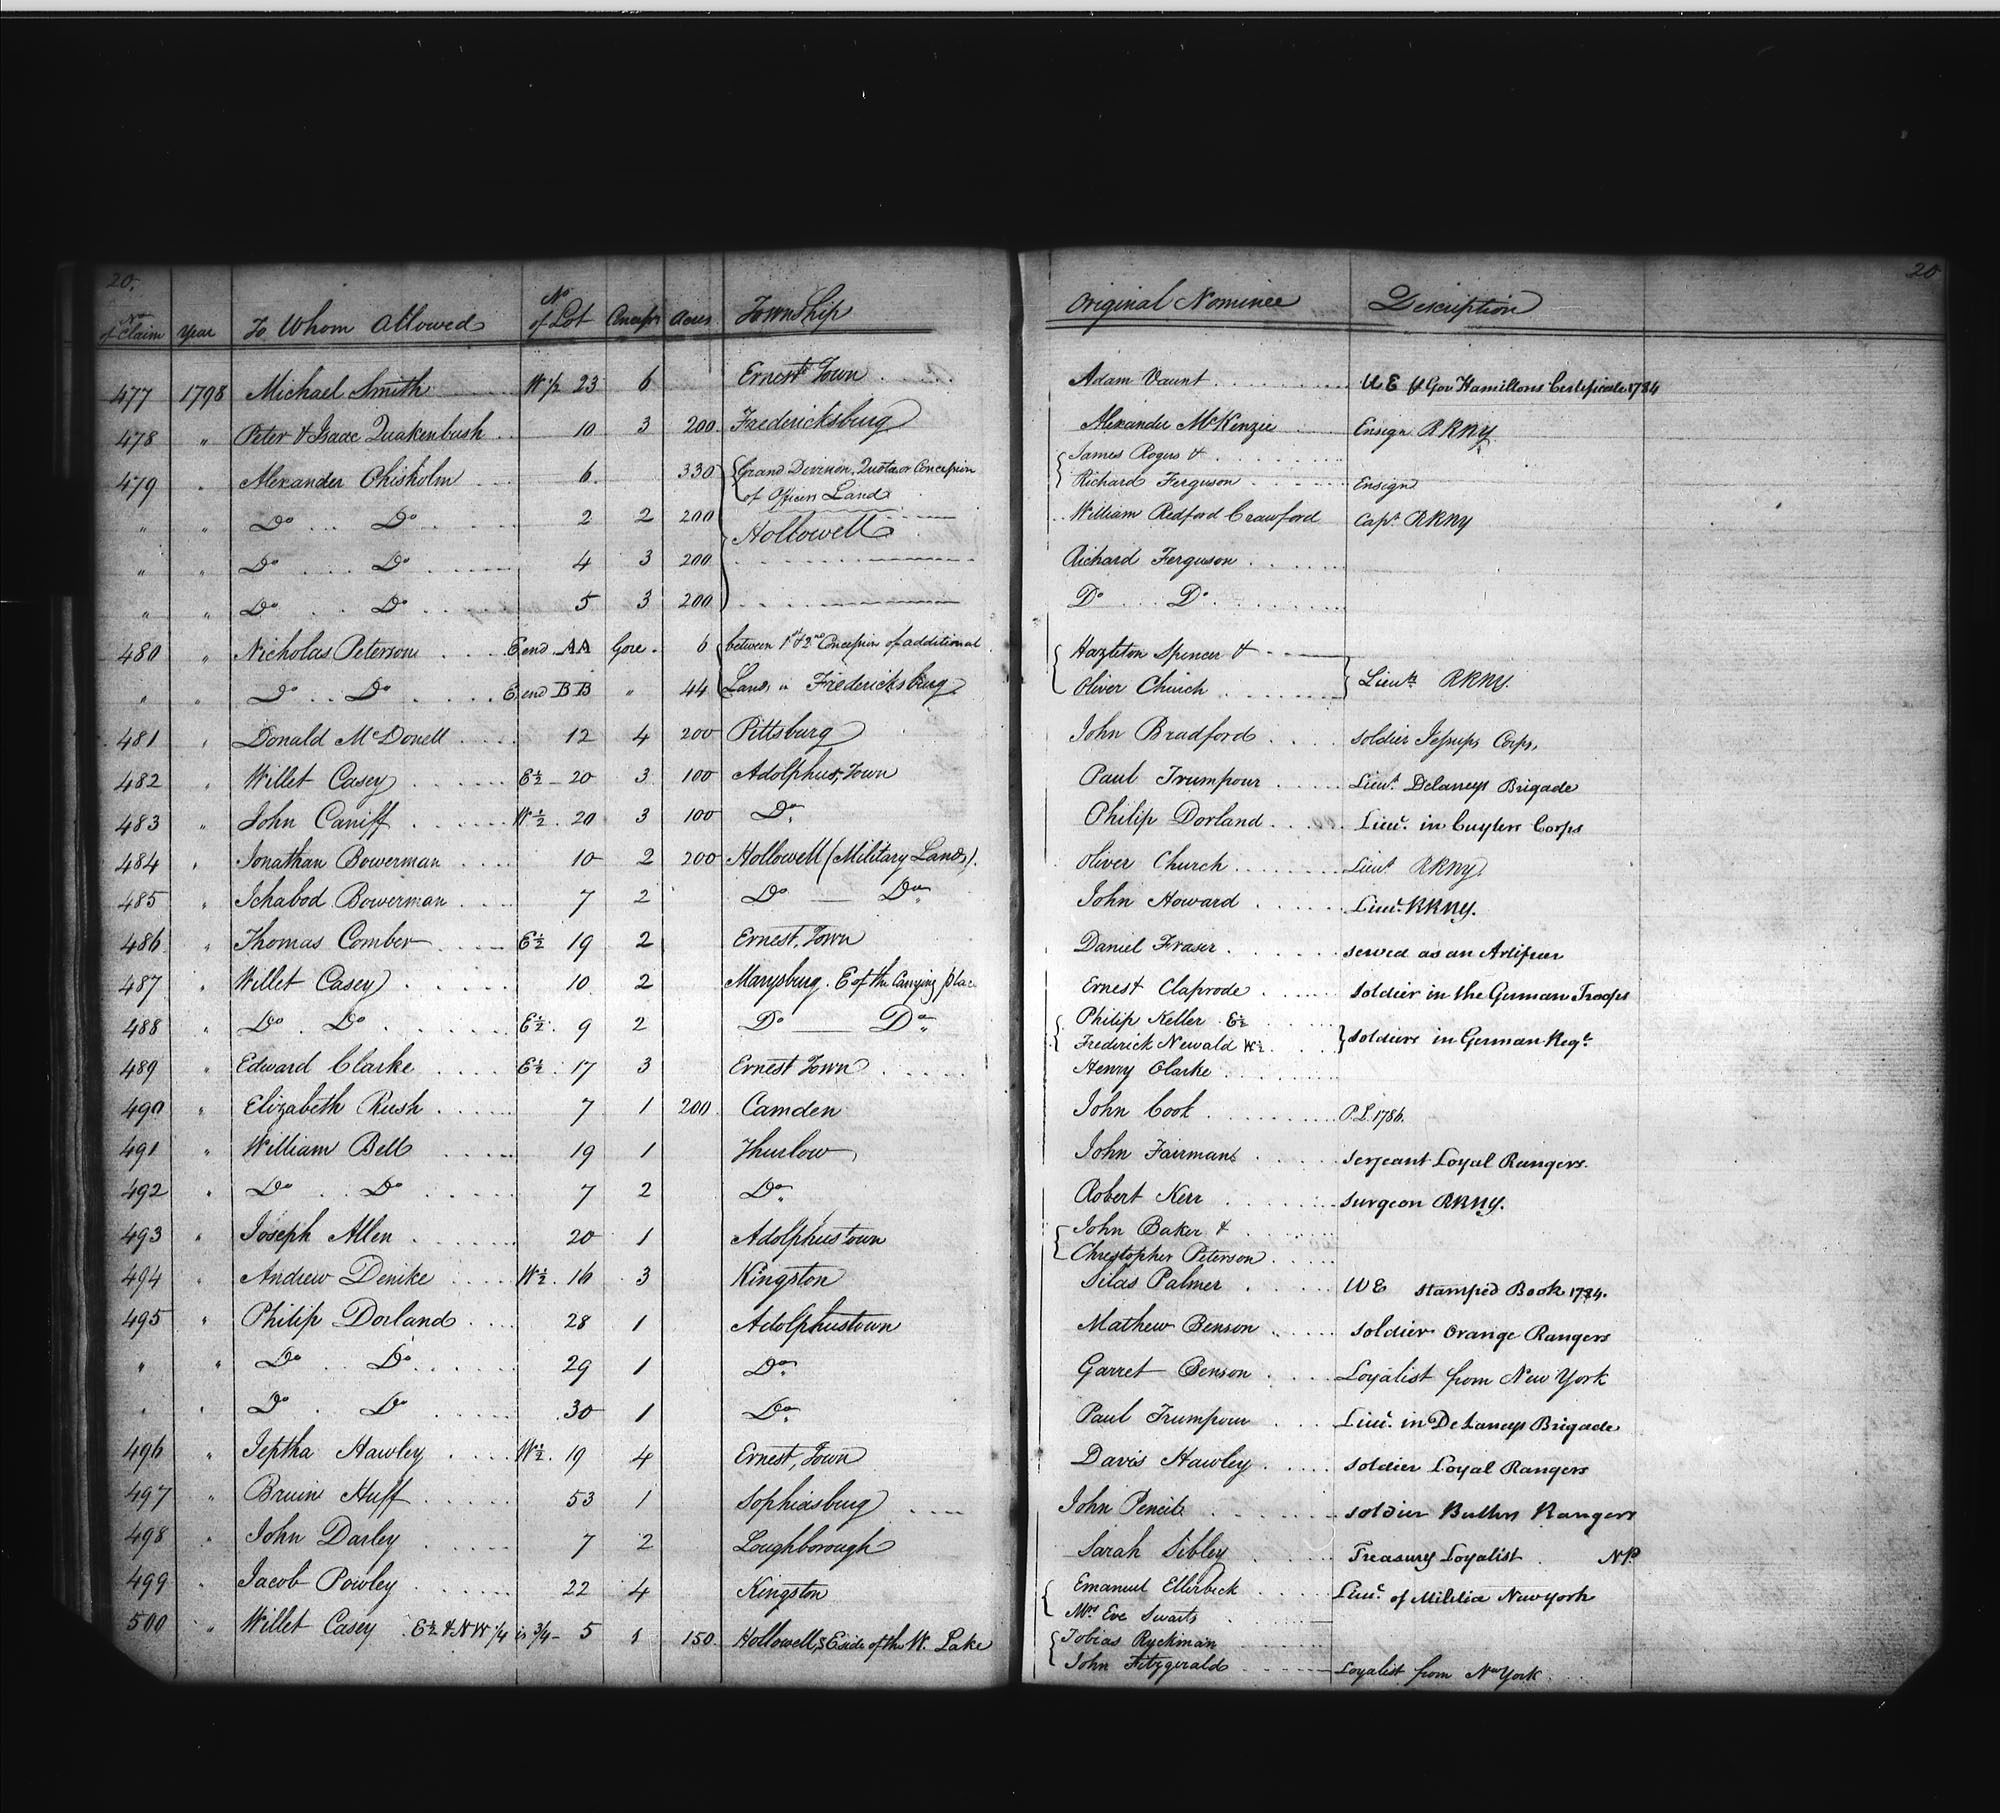 20.
No of Claim Year To Whom allowed No of Lot Concessn Acres Township Original Nominee Description
20
477 1798 Michael Smith W 1/2 23 6 Ernest Town Adam Vaunt UE Lt Gov Hamiltons Certificate 1784
478 " Peter & Isaac Quakenbush 10 3 200 Fredericksburg Alexander McKenzie Ensign RRNY
479 " Alexander Chisholm 6. 330 Grand Division, Quota or Concession James Rogers &
of Officers Land Richard Ferguson Ensign
" " Do Do 2 2 200 Hollowell William Redford Crawford Capt RRNY
" " Do Do 4 3 200 Richard Ferguson
" " Do Do 5 3 200 Do Do
480 " Nicholas Peterson E end AA Gore 6 between 1st & 2nd Concession of additional Hazleton Spencer &
" " Do Do E end BB " 44 Land " Fredericksburg Oliver Church Lieuts RRNY.
481 " Donald McDonell 12 4 200 Pittsburg John Bradford Soldier Jessups Corps,
482 " Willet Casey E½ 20 3 100 Adolphus, Town Paul Trumpour Lieut Delanceys Brigade
483 " John Caniff W½ 20 3 100 Do Philip Dorland Lieut. in Cuylers Corps
484 " Jonathan Bowerman 10 2 200 Hollowell (Military Lands). Oliver Church Lieut RRNY
485 " Ichabod Bowerman 7 2 Do Do John Howard Lieut. RRNY.
486 " Thomas Comber E½ 19 2 Ernest, Town Daniel Fraser served as an Artificer
487 " Willet Casey 10 2 Marysburg. E of the Carrying place Ernest Claprode Soldier in the German Troops
488 " Do Do E½ 9 2 Do Do Philip Keller E½
Frederick Newald W½ soldiers in German Regt
489 " Edward Clarke E½ 17 3 Ernest Town Henry Clarke
490 " Elizabeth Rush 7 1 200 Camden John Cook P.L. 1786.
491 " William Bell 19 1 Thurlow John Fairman Serjeant Loyal Rangers.
492 " Do Do 7 2 Do Robert Kerr Surgeon RRNY.
493 " Joseph Allen 20 1 Adolphustown John Baker &
Christopher Peterson
494 " Andrew Denike W½ 16 3 Kingston Silas Palmer UE Stamped Book 1784.
495 " Philip Dorland 28 1 Adolphustown Mathew Benson Soldier Orange Rangers
" " Do Do 29 1 Do Garret Benson Loyalist from New York
" " Do Do 30 1 Do Paul Trumpour Lieut. in DeLanceys Brigade
496 " Jeptha Hawley W½ 19 4 Ernest, Town Davis Hawley Soldier Loyal Rangers
497 " Bruin Huff 53 1 Sophiasburg John Pencil Soldier Butlers Rangers
498 " John Darley 7 2 Loughborough Sarah Sibley Treasury Loyalist NP
499 " Jacob Powley 22 4 Kingston Emanuel Ellerbeck Lieut. of Militia New York
Mrs Eve Swarts
500 " Willet Casey E½ & NW 1/4 is 3/4 5 1 150 Hollowell, S E side of the W. Lake Tobias Ryckman
John Fitzgerald Loyalist from New York